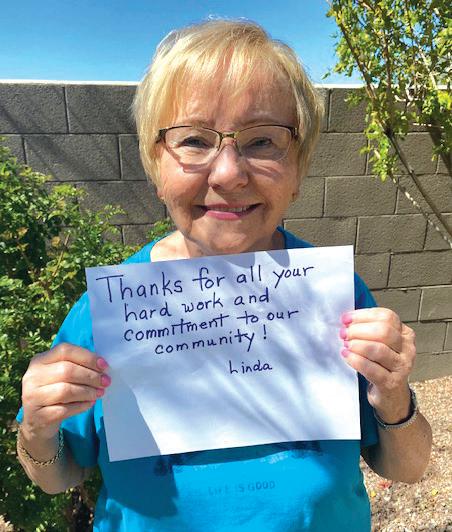 Thanks for all your
hard work and
commitment to our
community!
Linda
LIFE IS GOOD